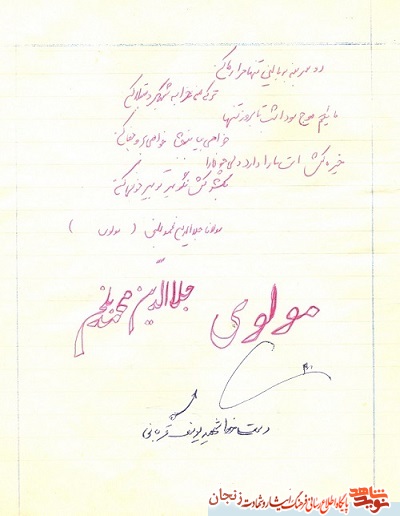 رو سر بنه به بالین تنها مرا رها کن
ترک من خراب شبگرد مبتلا کن
مائیم موج سودا شب تا بروز تنها
خواهی بیا ببخشا خواهی برو جفا کن
خیره کشی است ما را دارد دلی چو خارا
بکشد کسش نگوید تدبیر خونبها کن
مولانا جلال الدین محمد بلخی ( مولوی )
مولوی جلال الدین محمد بلخی
دست خط شهید یوسف قربانی
نوید شاهد
پایگاه اطلاع رسانی فرهنگ ایثار و شهادت زنجان